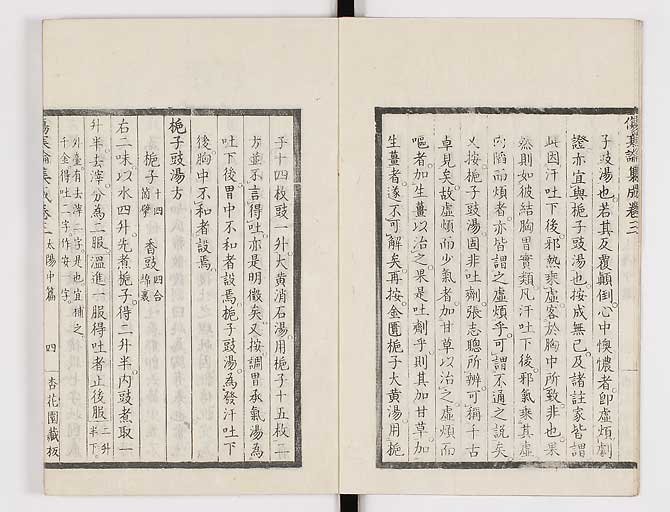 傷寒論集成卷三
子豉湯也若其反覆顛倒心中懊憹者卽虛煩劇
證亦宜與梔子豉湯也按成無已及諸註家皆謂
此因汗吐下後邪熱乘虛客於胸中所致非也果
然則如彼結胸胃實類凡汗吐下後邪氣乘其虛
內陷而煩者亦皆謂之虛煩乎可謂不通之說矣
又按梔子豉湯固非吐劑張志聰所辨可稱千古
卓見矣故虛煩而少氣者加甘草以治之虛煩而
嘔者加生薑以治之果是吐劑乎則其加甘草加
生薑者遂不可解矣再按金匱梔子大黃湯用梔
子十四枚豉一升大黃消石湯用梔子十五枚二
方並不言得吐亦是明徵矣又按調胃承氣湯爲
吐下後胃中不和者設焉梔子豉湯爲發汗吐下
後胸中不和者設焉
梔子豉湯方
梔子十四箇擘 香豉四合綿裹
右二味以水四升先煮梔子得二升半內豉煮取一
升半去滓分爲二服溫進一服得吐者止後服二升半下
外臺有去滓二字是也宜補之
千金得吐二字作安一字
傷寒論集成卷三 太陽中篇 四 杏花園藏板